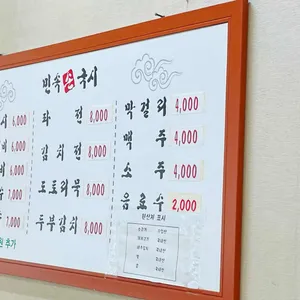 민속 손 국시
시 6,000
파 전 8,000
막걸리 4,000
비 6,000
김치전 8,000
맥 주 4,000
비 6,000
도토리묵 8,000
소 주 4,000
7,000
두부김치 8,000
음료수 2,000
7,000
원산지 표시
추가